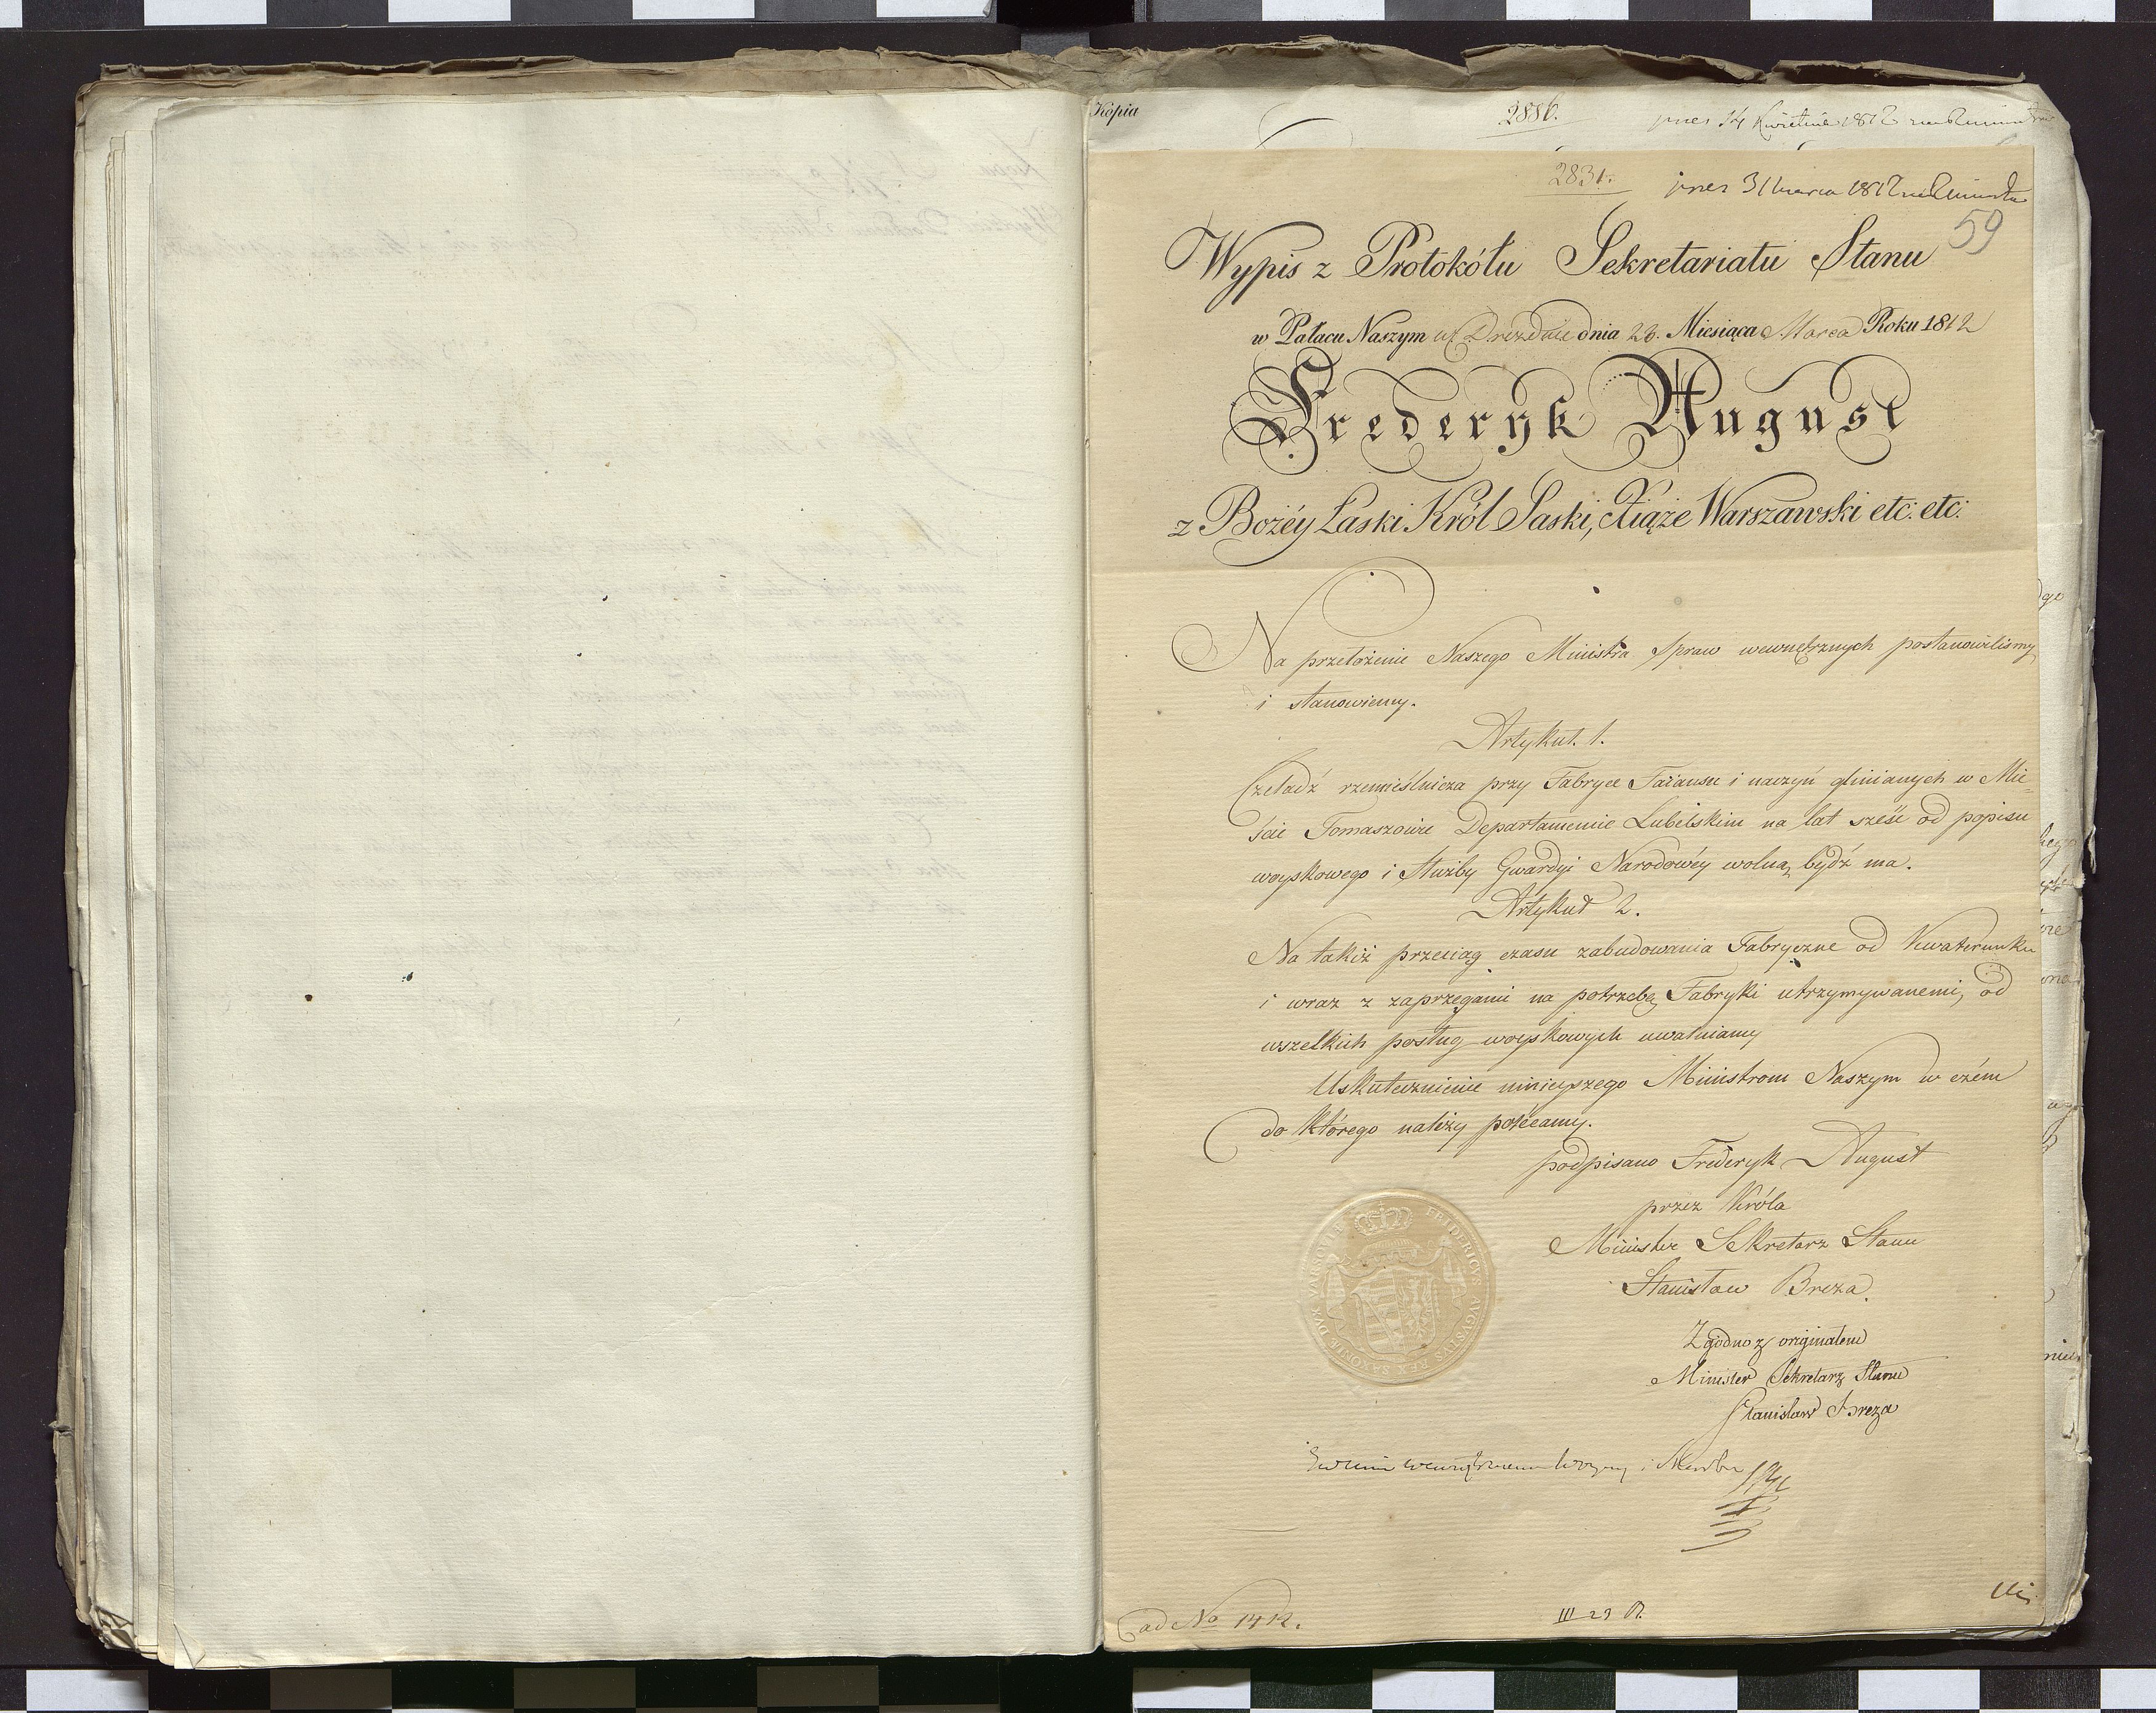 Kopia
2886.
14 Kwietnia 1812
2831.
31 Marca 1812
59
Wypis z Protokółu Sekretariatu Stanu
w Pałacu Naszym w Dreźdnie dnia 23. Miesiąca Marca Roku 1812
Frederyk August
z Bożéy Łaski Król Saski, Xiąże Warszawski etc: etc:
Na przełożenie Naszego Ministra Spraw wewnętrznych postanowilismy
i stanowiemy.
Artykuł. 1.
Czeladź rzemieślnicza przy Fabryce Faiansu i naczyń glinianych w Mie=
scie Tomaszowie Departamencie Lubelskim na lat sześć od popisu
woyskowego i Służby Gwardyi Narodowéy wolną bydź ma.
Artykuł 2.
Na takiż przeciąg czasu zabudowania Fabryczne od Kwaterunku
i wraz z zaprzęgami na potrzebę Fabryki utrzymywanemi, od
wszelkich posług woyskowych uwalniamy
Uskutecznienie ninieyszego Ministrom Naszym w czém
do którego należy polécamy.
podpisano Frederyk August
przez Króla
Minister Sekretarz Stanu
Stanisław Breza.
FRIDERICVS AVGVSTVS REX SAXONIÆ DVX VARSOVIÆ
Zgodno z originałem
Minister Sekretarz Stanu
Stanisław Breza
i Skarbu
ad No 1412.
III 23